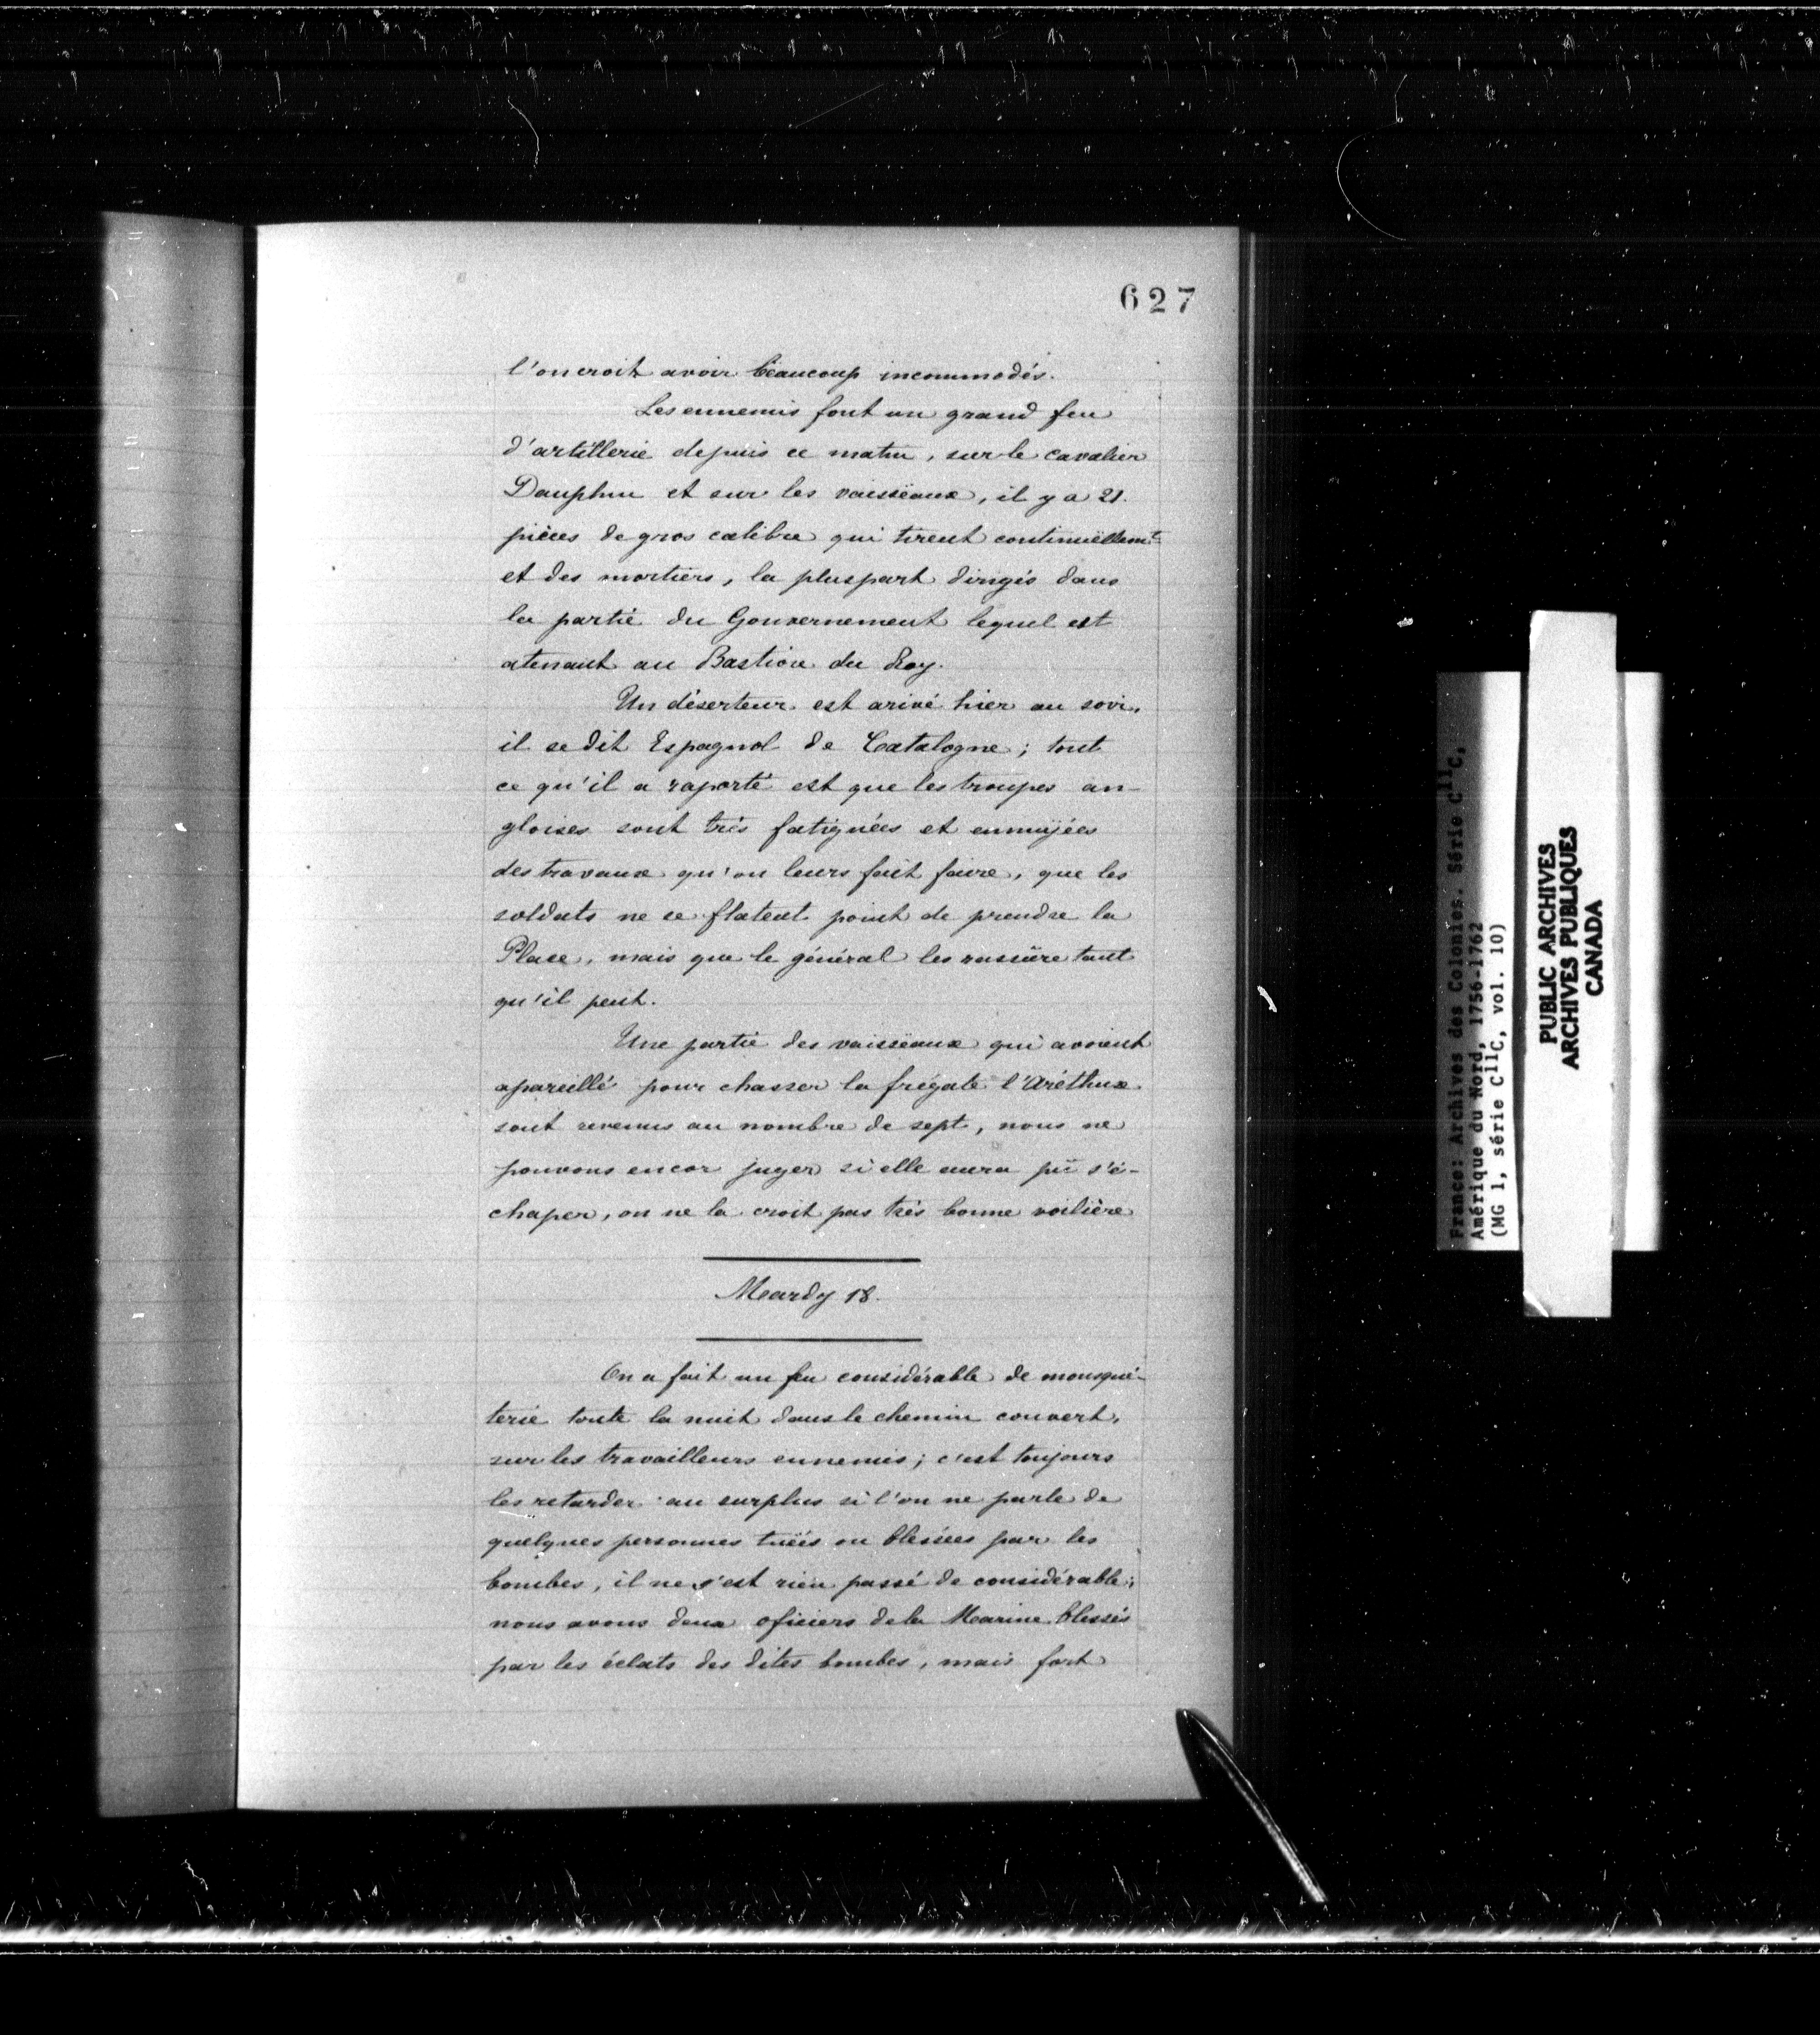 627
l'on croit avoir beaucoup incommodés.
Les ennemis font un grand feu
d'artillerie depuis ce matin, sur le cavalier
Dauphin et sur les vaisseaux, il y a 21.
pièces de gros calibre qui tirent continuëllemt
et des mortiers, la pluspart dirigés dans
la partie du Gouvernement lequel est
atenant au Bastion du Roy.
Un déserteur est arivé hier au soir,
il se dit Espagnol de Catalogne; tout
ce qu'il a raporté est que les troupes an-
gloises sont très fatiguées et ennuyées
des travaux qu'on leurs fait faire, que les
soldats ne se flatent point de prendre la
Place, mais que le général les rassûre tant
qu'il peut.
Une partie des vaisseaux qui avoient
apareillé pour chasser la frégate l'Aréthuse
sont revenus au nombre de sept, nous ne
pouvons encor juger si elle aura pû s'é-
chaper, on ne la croit pas très bonne voilière
Mardy 18.
On a fait un feu considérable de mousqué-
terie toute la nuit dans le chemin couvert,
sur les travailleurs ennemis; c'est toujours
les retarder. au surplus si l'on ne parle de
quelques personnes tuëés ou blessées par les
bombes, il ne s'est rien passé de considérable;
nous avons deux oficiers de la Marine blessés
par les éclats des dites bombes, mais fort
France: Archives des Colonies. Série C11C,
Amérique du Nord, 1756-1762
(MG 1, série C11C, vol. 10)
PUBLIC ARCHIVES
ARCHIVES PUBLIQUES
CANADA